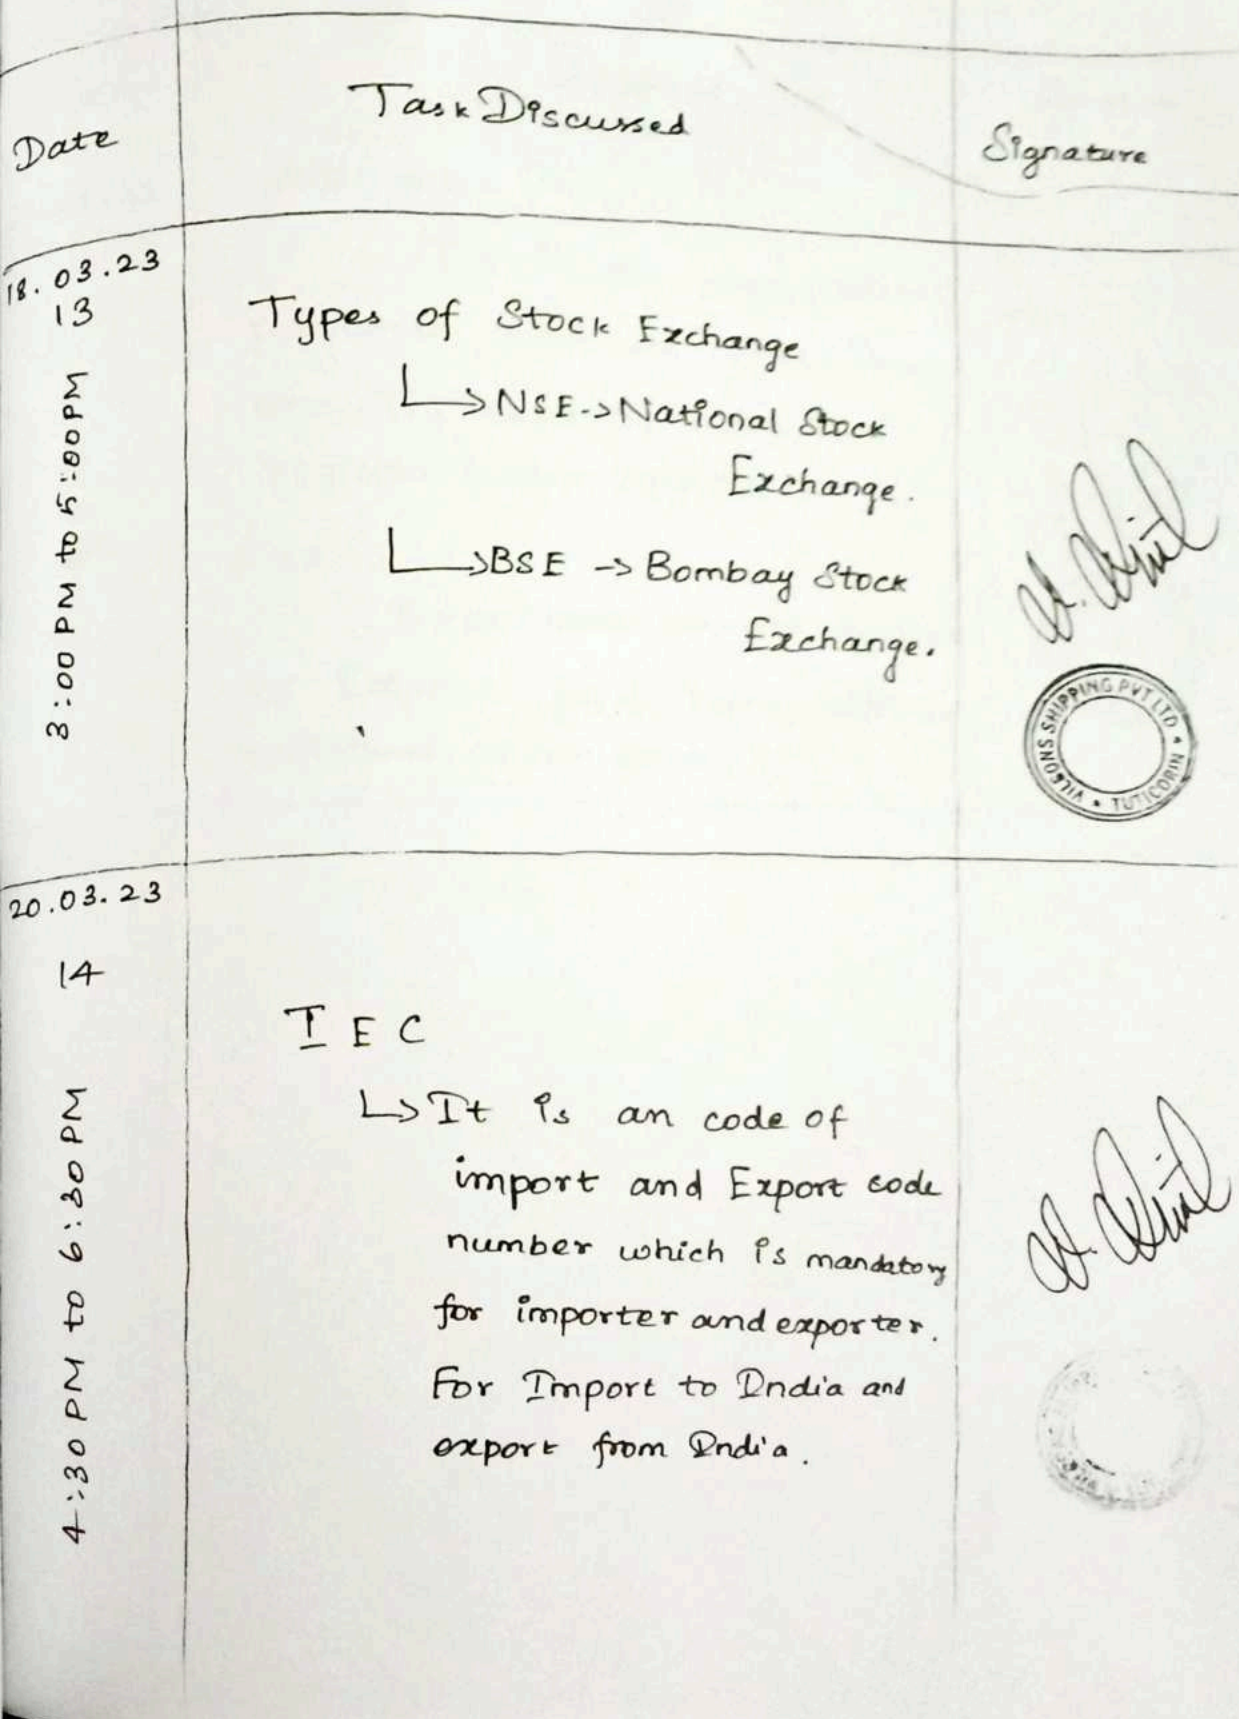 Date
Task Discussed
Signature
18.03.23
13
3:00 PM to 5:00PM
Types of Stock Exchange
↳ NSE -> National Stock
Exchange.
↳ BSE -> Bombay Stock
Exchange.
VILSONS SHIPPING PVT LTD * TUTICORIN *
20.03.23
14
4:30 PM to 6:30 PM
IEC
↳ It is an code of
import and Export code
number which is mandatory
for importer and exporter.
For Import to India and
export from India.